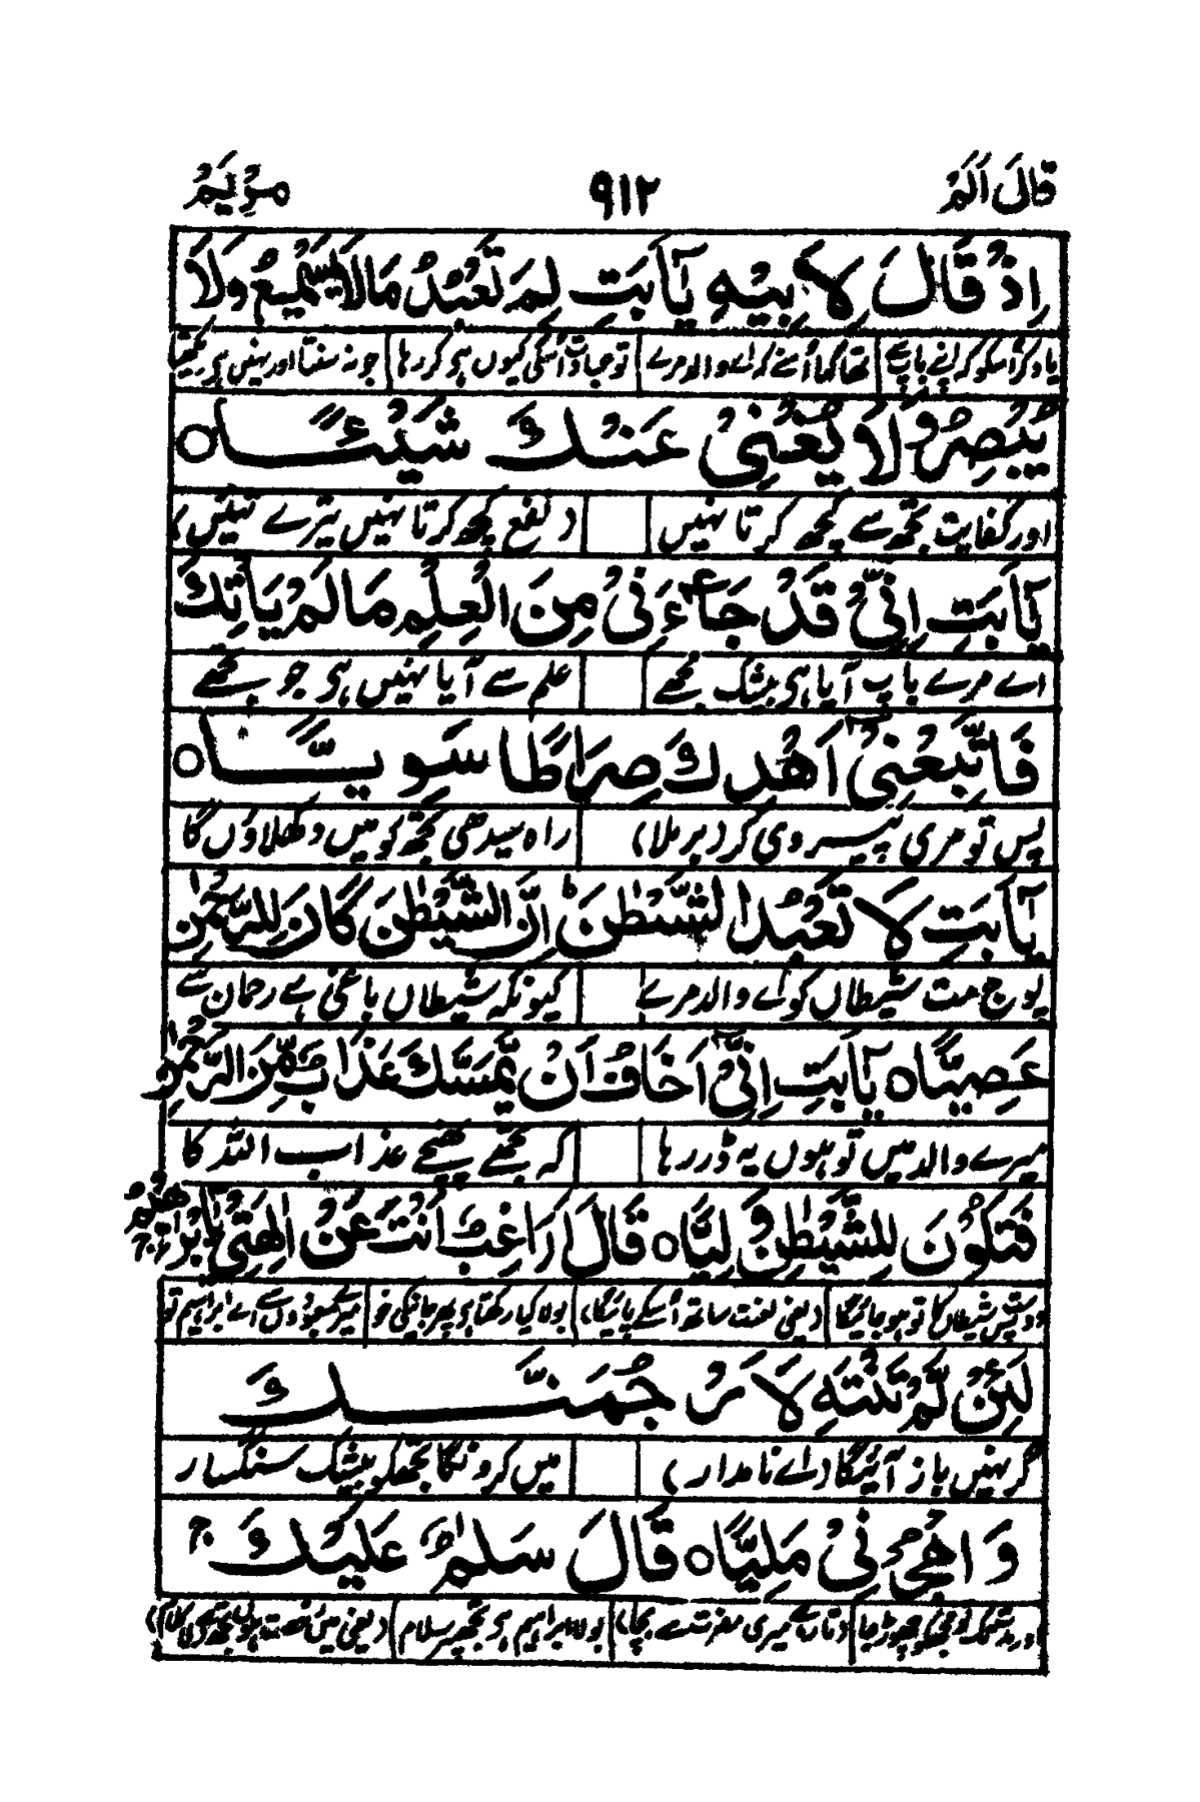 قَالَ اَلَمْ ۹۱۲ مَرْيَمْ
اِذْ قَالَ لِاَبِيْهِ يٰٓاَبَتِ لِمَ تَعْبُدُ مَا لَا يَسْمَعُ وَلَا
یاد کر اسکو کہ اپنے باپ سے تھا کہا اُسنے کہ اے والد مرے تو عبادت اُسکی کیوں ہی کر رہا جو نہ سنتا اور نہیں ہی دیکھتا
يُبْصِرُ وَلَا يُغْنِيْ عَنْكَ شَيْـــًٔا ○
اور کفایت تجھ سے کچھ کرتا نہیں (نفع کچھ کرتا نہیں تیرے تئیں)
يٰٓاَبَتِ اِنِّيْ قَدْ جَآءَنِيْ مِنَ الْعِلْمِ مَا لَمْ يَاْتِكَ
اے مرے باپ آیا ہی بیشک مجھے علم سے آیا نہیں ہی جو تجھے
فَاتَّبِعْنِيْٓ اَهْدِكَ صِرَاطًا سَوِيًّـــا ○
پس تو مری پیروی کر (بر ملا) راہ سیدھی تجھ کو میں دکھلاؤں گا
يٰٓاَبَتِ لَا تَعْبُدِ الشَّيْطٰنَ ؕ اِنَّ الشَّيْطٰنَ كَانَ لِلرَّحْمٰنِ
پوج مت شیطاں کو اے والد مرے کیونکہ شیطاں باغی ہے رحمان سے
عَصِيًّا ○ يٰٓاَبَتِ اِنِّيْٓ اَخَافُ اَنْ يَّمَسَّكَ عَذَابٌ مِّنَ الرَّحْمٰنِ
میرے والد میں تو ہوں یہ ڈر رہا کہ تجھے پہنچے عذاب اللہ کا
فَتَكُوْنَ لِلشَّيْطٰنِ وَلِيًّا ○ قَالَ اَرَاغِبٌ اَنْتَ عَنْ اٰلِهَتِيْ يٰٓاِبْرٰهِيْمُ ج
دوست پس شیطاں کا تو ہو جائیگا (یعنی لعنت ساتھ اُسکے پائیگا) بولا کیا رکھتا ہی پھر جانیکی خو میرے معبودوں سے اے ابراہیم تو
لَئِنْ لَّمْ تَنْتَهِ لَاَرْجُمَنَّـــكَ
گر نہیں باز آئیگا (اے نامدار) میں کرونگا تجھکو بیشک سنگسار
وَاهْجُرْنِيْ مَلِيًّا ○ قَالَ سَلٰمٌ عَلَيْكَ ج
بولا ابراہیم ہو تجھپر سلام